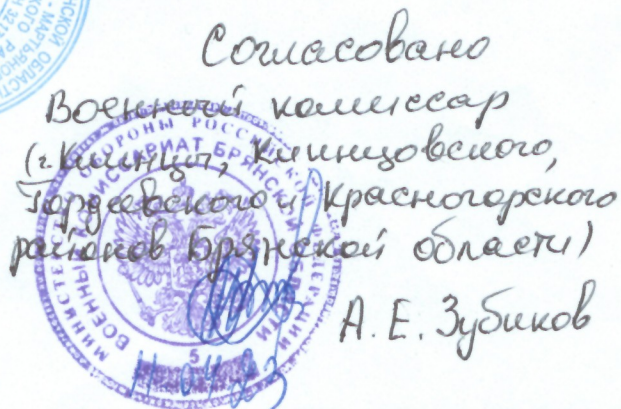 Согласовано
Военный комиссар
(г. Клинцы, Клинцовского,
Гордеевского и Красногорского
районов Брянской области)
А. Е. Зубиков
МИНИСТЕРСТВО ОБОРОНЫ РОССИЙСКОЙ ФЕДЕРАЦИИ
ВОЕННЫЙ КОМИССАРИАТ БРЯНСКОЙ ОБЛАСТИ
5